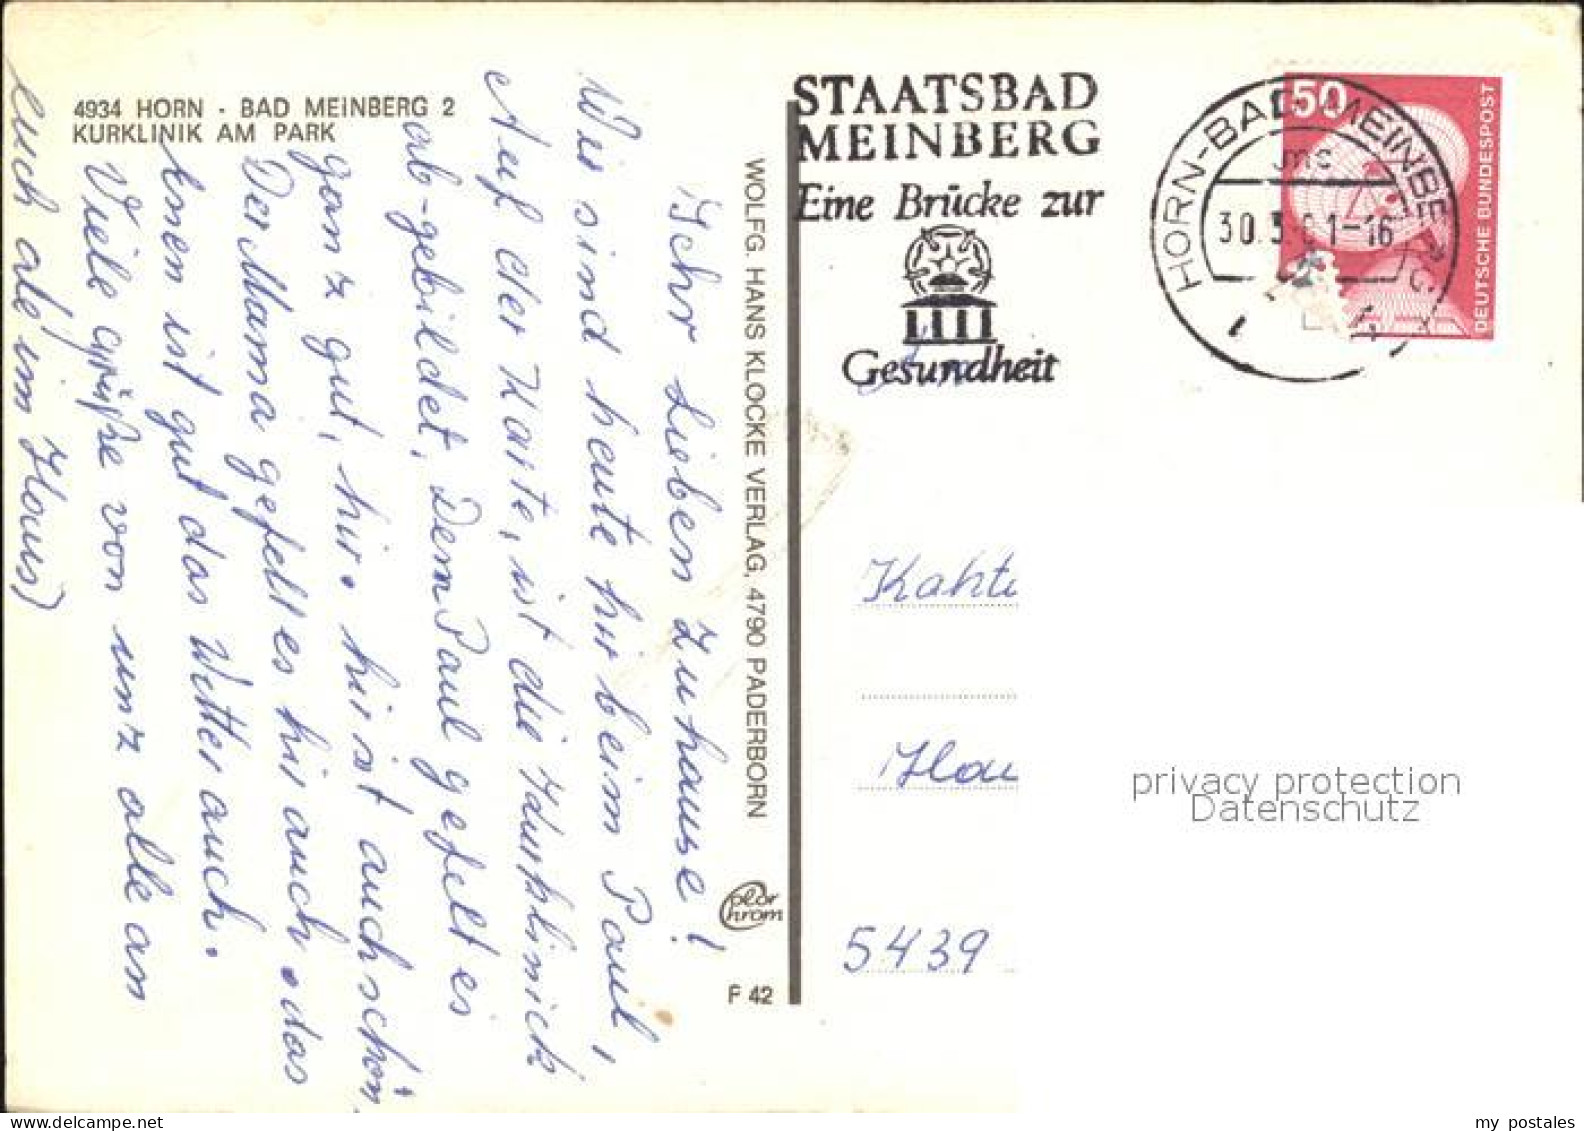 4934 HORN - BAD MEINBERG 2
KURKLINIK AM PARK
Ichr Lieben Zuhause!
Wir sind heute hir beim Paul,
Auf der Karte, ist die Kurklinick
ab-gebildet, Dem Paul gefelt es
ganz gut, hir. hir ist auch schön.
Der Mama gefelt es hir auch. das
Enen ist gut das Wetter auch.
Viele Grüße von unz alle an
Euch ale im Haus)
WOLFG. HANS KLOCKE VERLAG, 4790 PADERBORN
Color
Chrom
F 42
STAATSBAD
MEINBERG
Eine Brücke zur
Gesundheit
HORN-BAD MEINBERG
mc
30.3. 1-16
1
50
DEUTSCHE BUNDESPOST
Kaht
Hau
5439
privacy protection
Datenschutz
my postales